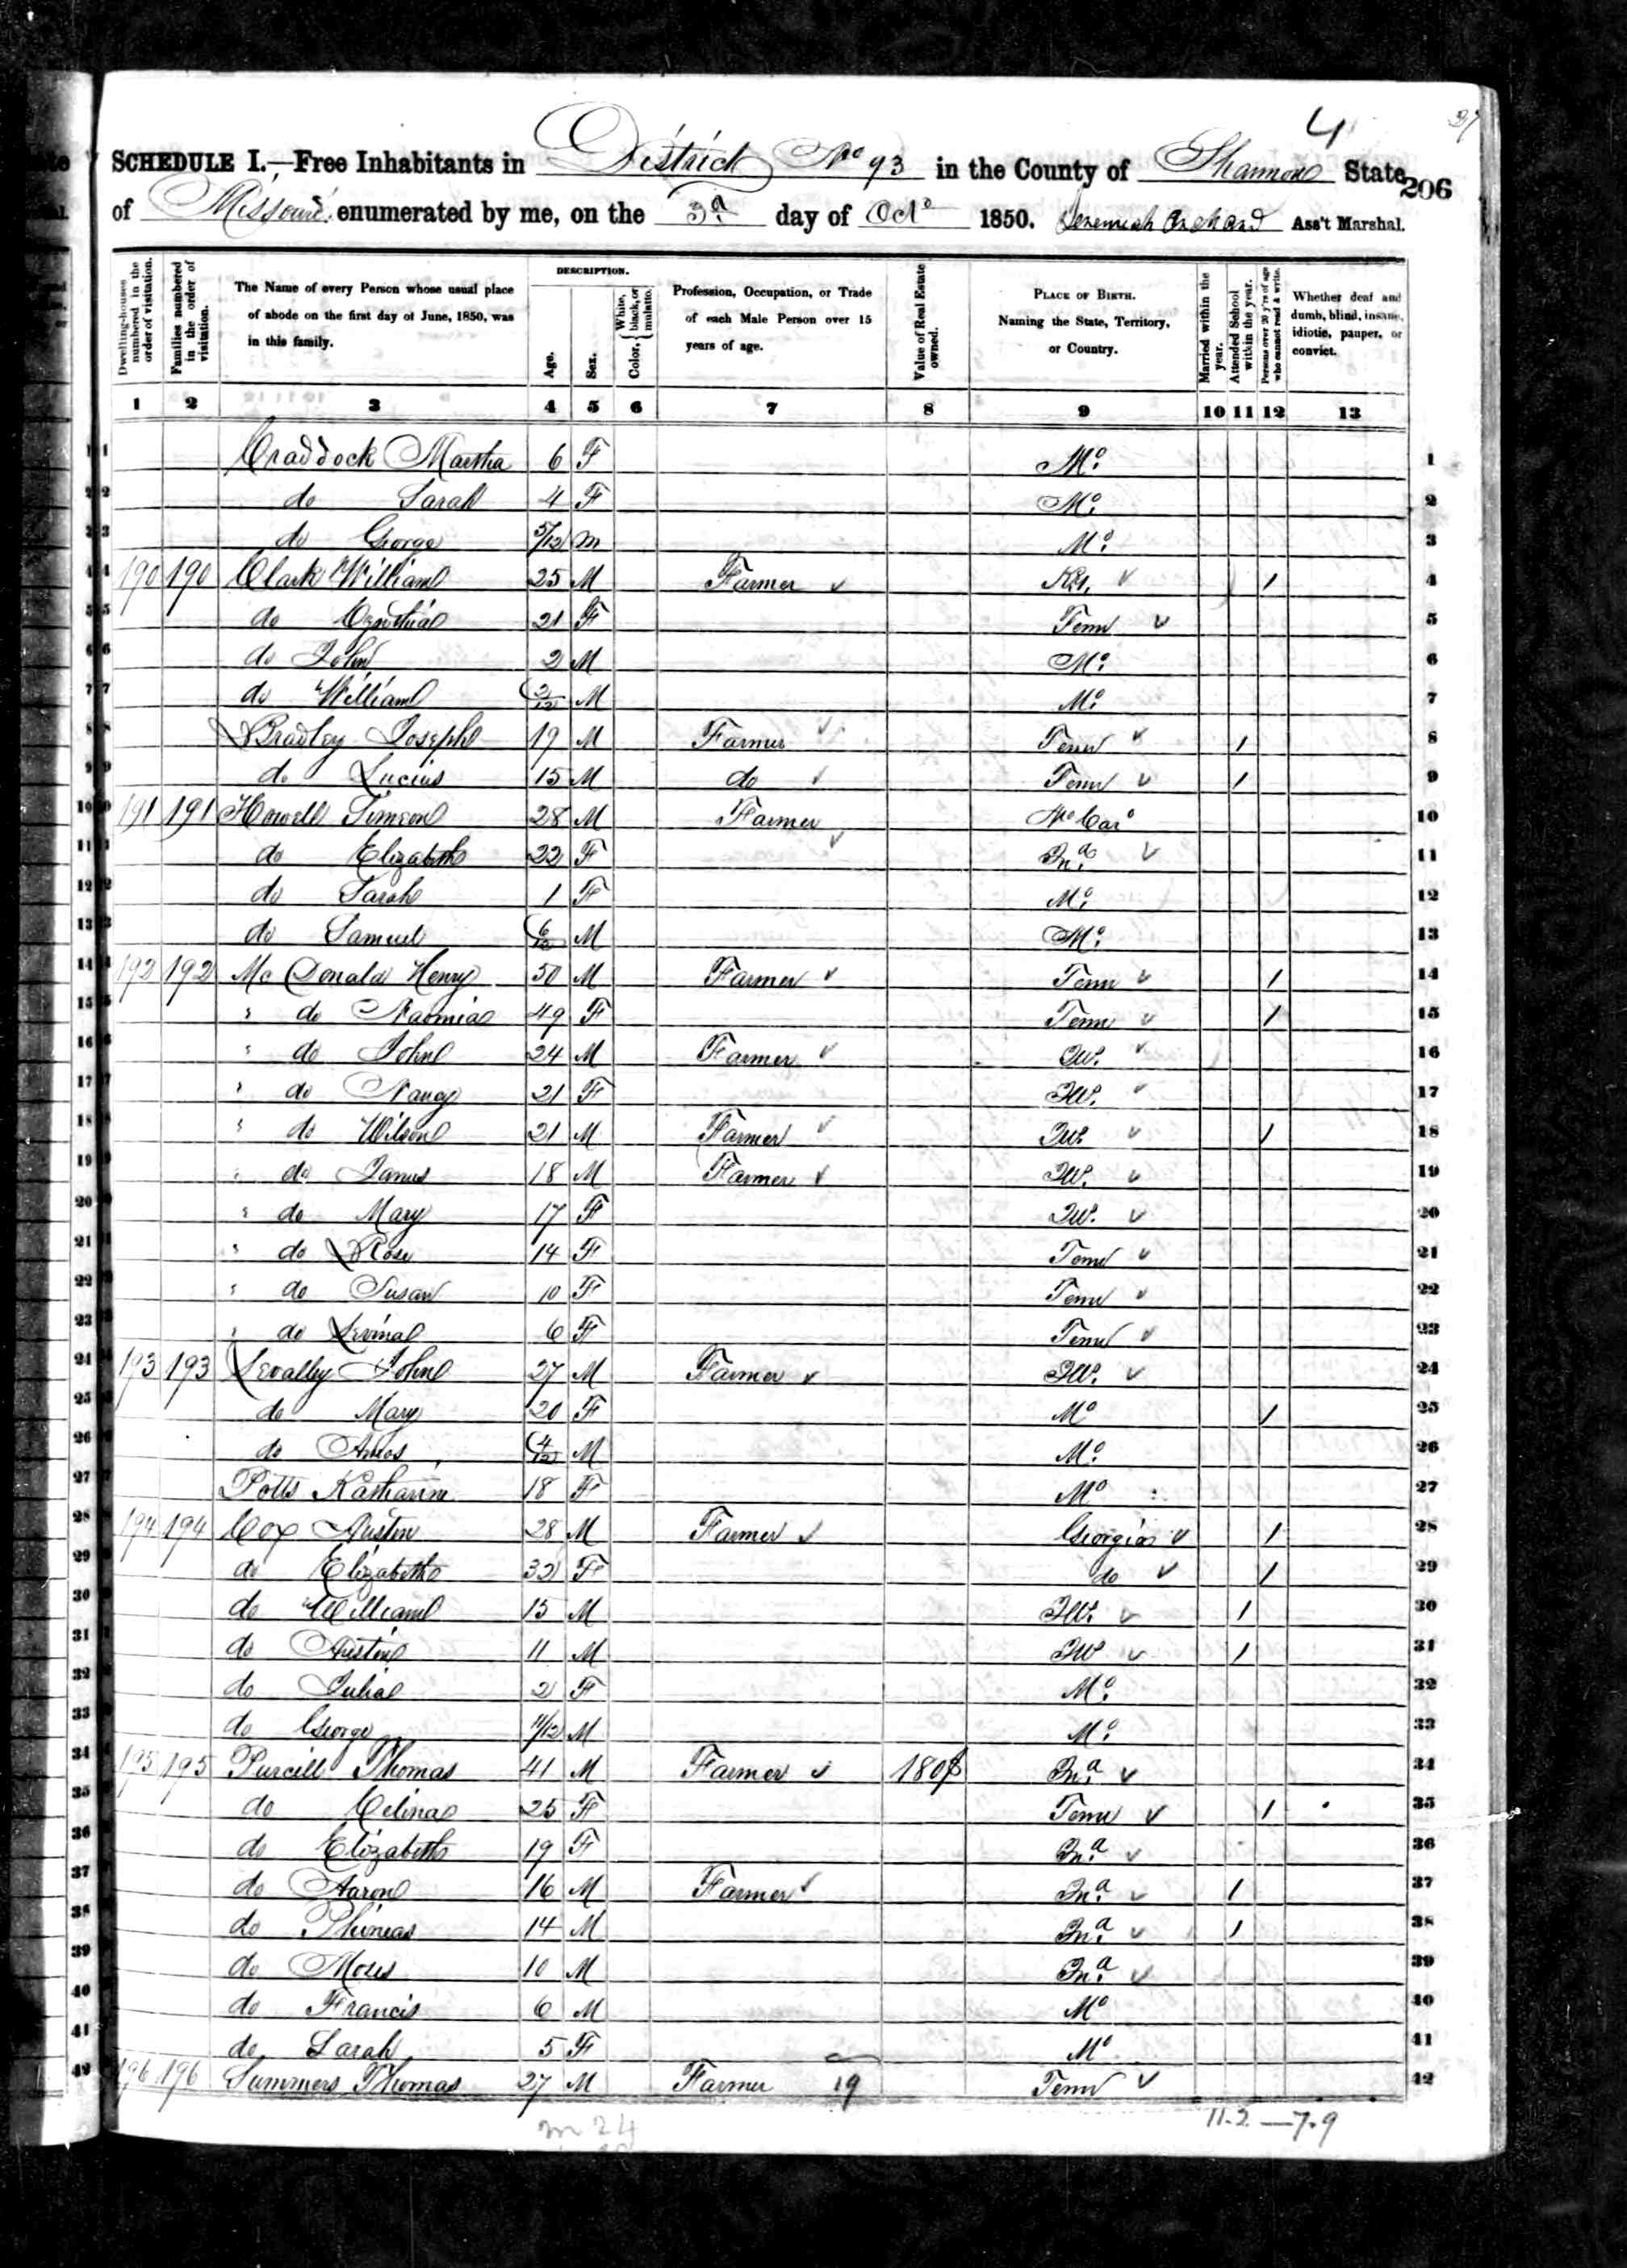 4 37
SCHEDULE I.—Free Inhabitants in District No 93 in the County of Shannon State 206
of Missouri enumerated by me, on the 3d day of Oct 1850. Jeremiah Orchard Ass't Marshal.
Dwelling-houses numbered in the order of visitation.
Families numbered in the order of visitation.
The Name of every Person whose usual place of abode on the first day of June, 1850, was in this family.
DESCRIPTION.
Age.
Sex.
Color, { White, black, or mulatto.
Profession, Occupation, or Trade of each Male Person over 15 years of age.
Value of Real Estate owned.
PLACE OF BIRTH. Naming the State, Territory, or Country.
Married within the year.
Attended School within the year.
Persons over 20 y'rs of age who cannot read & write.
Whether deaf and dumb, blind, insane, idiotic, pauper, or convict.
1 2 3 4 5 6 7 8 9 10 11 12 13
1 Craddock Martha 6 F Mo. 1
2 do Sarah 4 F Mo. 2
3 do George 5/12 m Mo. 3
4 190 190 Clark William 25 M Farmer ✓ Ky. ✓ 1 4
5 do 21 F Tenn ✓ 5
6 do John 2 M Mo. 6
7 do William 2/12 M Mo. 7
8 Bradley Joseph 19 M Farmer ✓ Tenn ✓ 1 8
9 do Lucius 15 M do ✓ Tenn ✓ 1 9
10 191 191 Howell Simeon 28 M Farmer No Caro 10
11 do Elizabeth 22 F ✓ Ina. ✓ 11
12 do Sarah 1 F Mo. 12
13 do Samuel 6/12 M Mo. 13
14 192 192 Mc Donald Henry 50 M Farmer ✓ Tenn ✓ 1 14
15 " do Naomia 49 F Tenn ✓ 1 15
16 " do John 24 M Farmer ✓ Ill. ✓ 16
17 " do Nancy 21 F Ill. ✓ 17
18 " do Wilson 21 M Farmer ✓ Ill. ✓ 1 18
19 " do James 18 M Farmer ✓ Ill. ✓ 19
20 " do Mary 17 F Ill. ✓ 20
21 " do Rose 14 F Tenn ✓ 21
22 " do Susan 10 F Tenn ✓ 22
23 " do 6 F Tenn ✓ 23
24 193 193 Levalley John 27 M Farmer ✓ Ill. ✓ 24
25 do Mary 20 F Mo 1 25
26 do Amos 4/12 M Mo. 26
27 Potts Katharine 18 F Mo 27
28 194 194 Cox Austin 28 M Farmer ✓ Georgia ✓ 1 28
29 do Elizabeth 32 F do ✓ 1 29
30 do William 15 M Ill. ✓ 1 30
31 do Austin 11 M Ill ✓ 1 31
32 do Julia 2 F Mo. 32
33 do George 11/12 M Mo. 33
34 195 195 Purcill Thomas 41 M Farmer ✓ 180$ Ina. ✓ 34
35 do Celina 25 F Tenn ✓ 1 35
36 do Elizabeth 19 F Ina. ✓ 36
37 do Aaron 16 M Farmer ✓ Ina. ✓ 1 37
38 do Phineas 14 M Ina. ✓ 1 38
39 do Moses 10 M Ina. ✓ 39
40 do Francis 6 M Mo 40
41 do Sarah 5 F Mo 41
42 196 196 Summers Thomas 27 M Farmer 19 Tenn ✓ 42
m 24 11-2-7-9